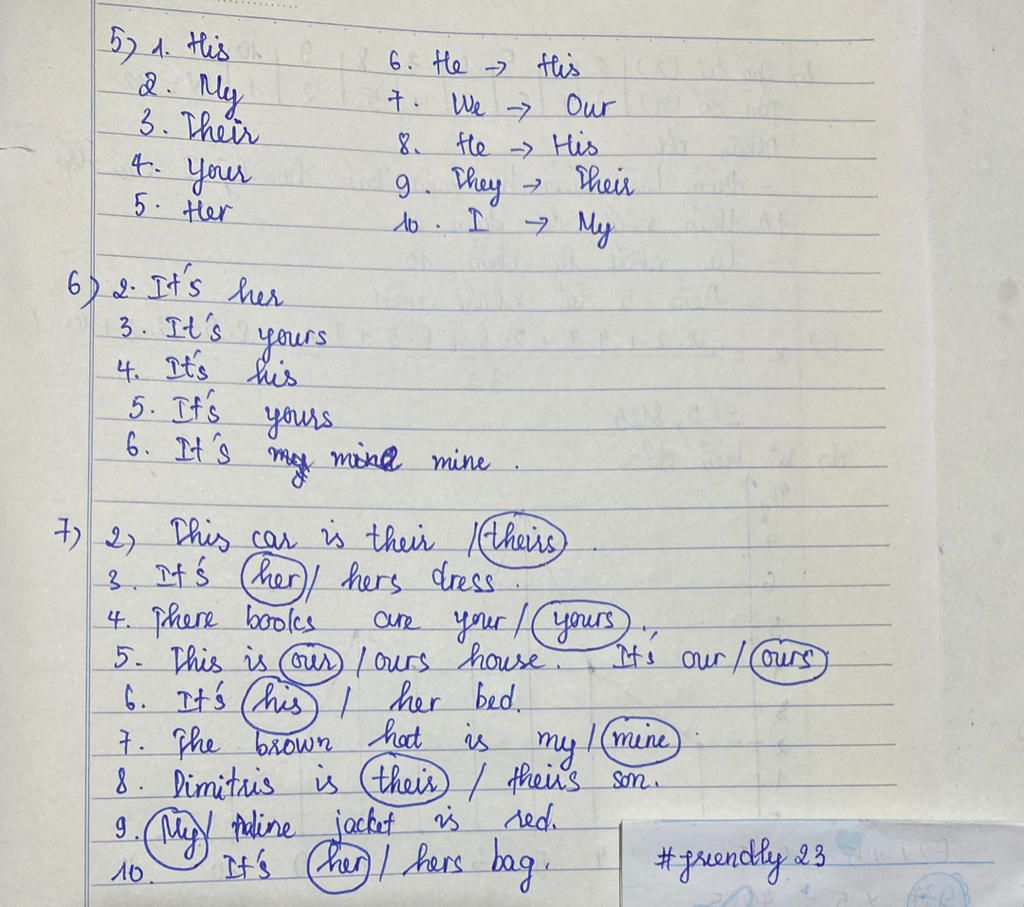 5) 1. His
2. My
3. Their
4. Your
5. Her
6. He → His
7. We → Our
8. He → His
9. They → Their
10. I → My
6) 2. It's her
3. It's yours
4. It's his
5. It's yours
6. It's my mine mine.
7) 2) This car is their / theirs.
3. It's her / hers dress.
4. There books are your / yours.
5. This is our / ours house. It's our / ours
6. It's his / her bed.
7. The brown hat is my / mine.
8. Dimitris is their / theirs son.
9. My / jacket is red.
10. It's her / hers bag.
#friendly 23